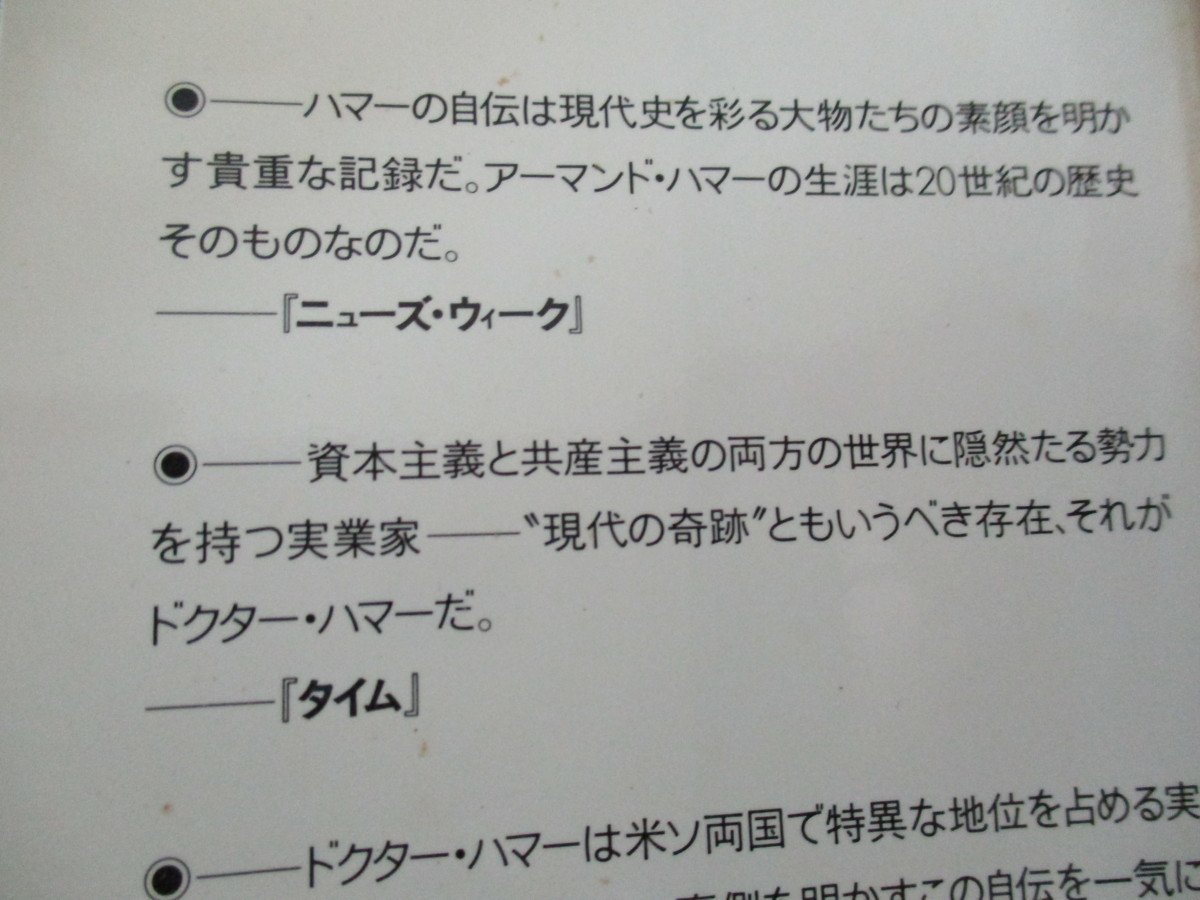 ◉――ハマーの自伝は現代史を彩る大物たちの素顔を明か
す貴重な記録だ。アーマンド・ハマーの生涯は20世紀の歴史
そのものなのだ。
――『ニューズ・ウィーク』
◉――資本主義と共産主義の両方の世界に隠然たる勢力
を持つ実業家――〝現代の奇跡〞ともいうべき存在、それが
ドクター・ハマーだ。
――『タイム』
◉――ドクター・ハマーは米ソ両国で特異な地位を占める実
側を明かすこの自伝を一気に